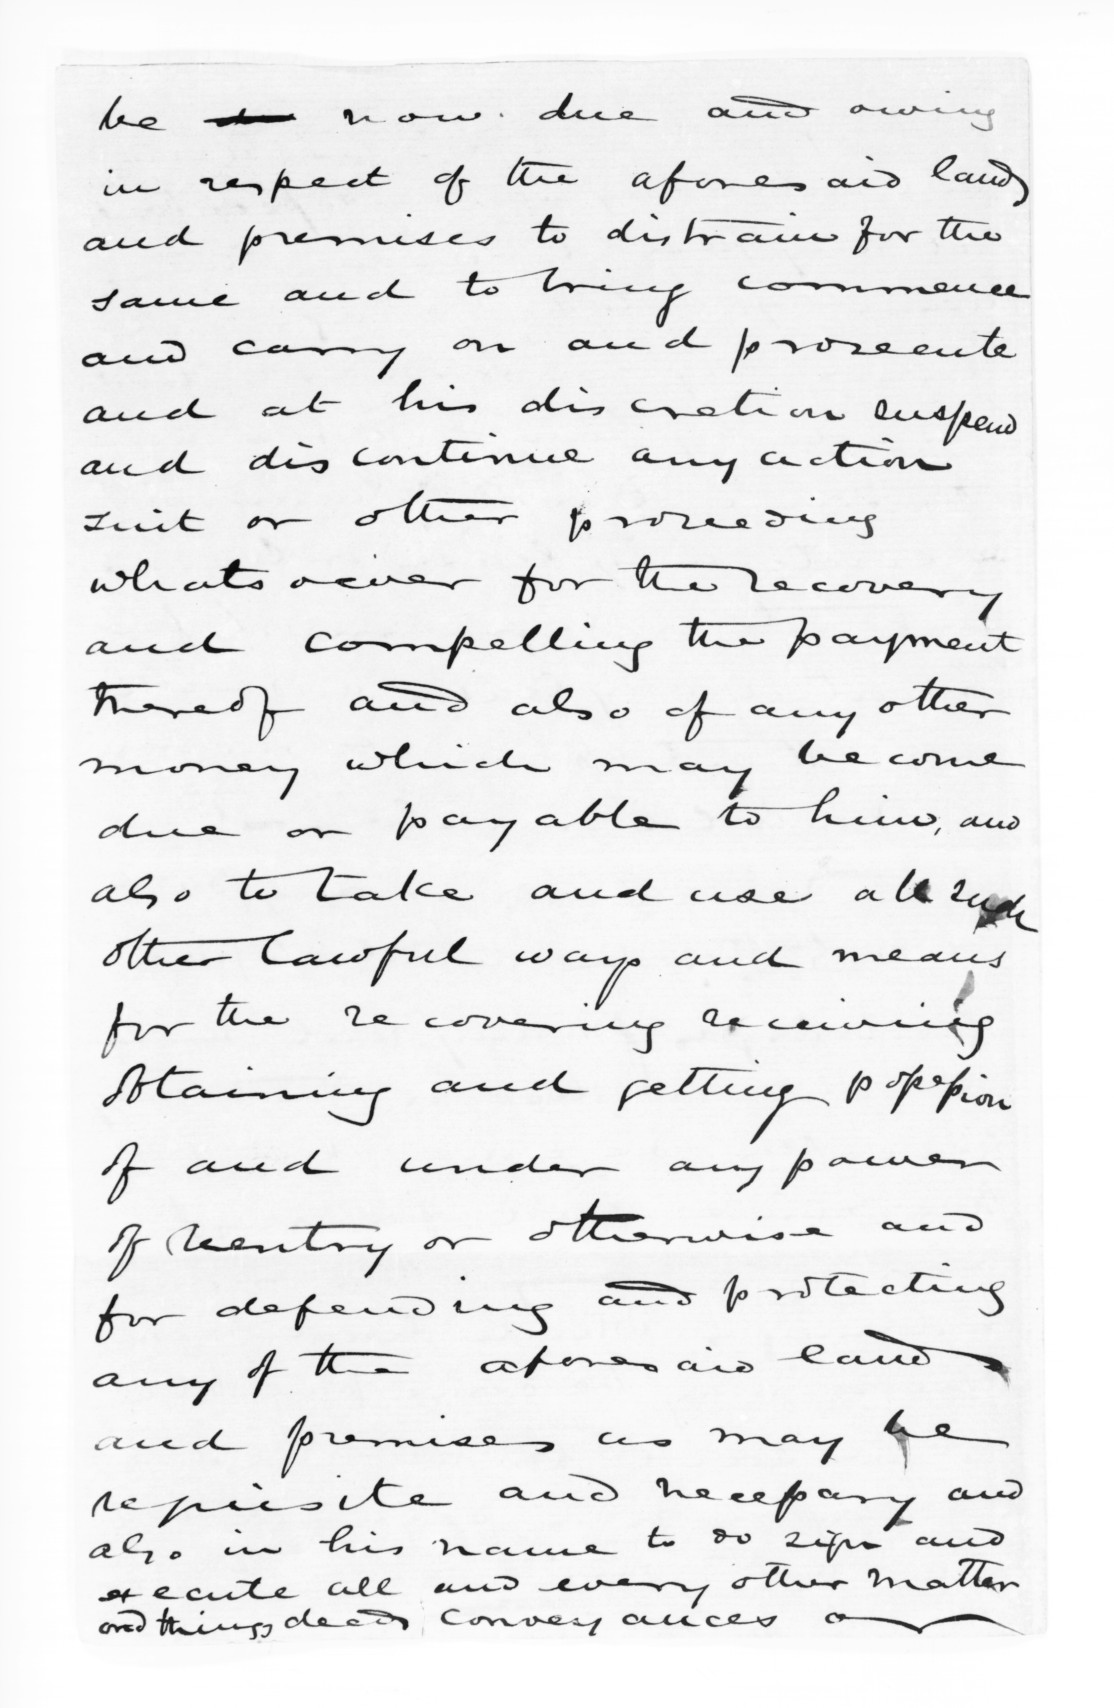 be now due and owing
in respect of the aforesaid lands
and premises to distrain for the
same and to bring commence
and carry on and prosecute
and at his discretion suspend
and discontinue any action
suit or other proceeding
whatsoever for the recovery
and compelling the payment
thereof and also of any other
money which may become
due or payable to him, and
also to take and use all such
other lawful ways and means
for the recovering receiving
obtaining and getting possession
of and under any power
of reentry or otherwise and
for defending and protecting
any of the aforesaid lands
and premises as may be
requisite and necessary and
also in his name to do sign and
execute all and every other matter
and things deeds conveyances